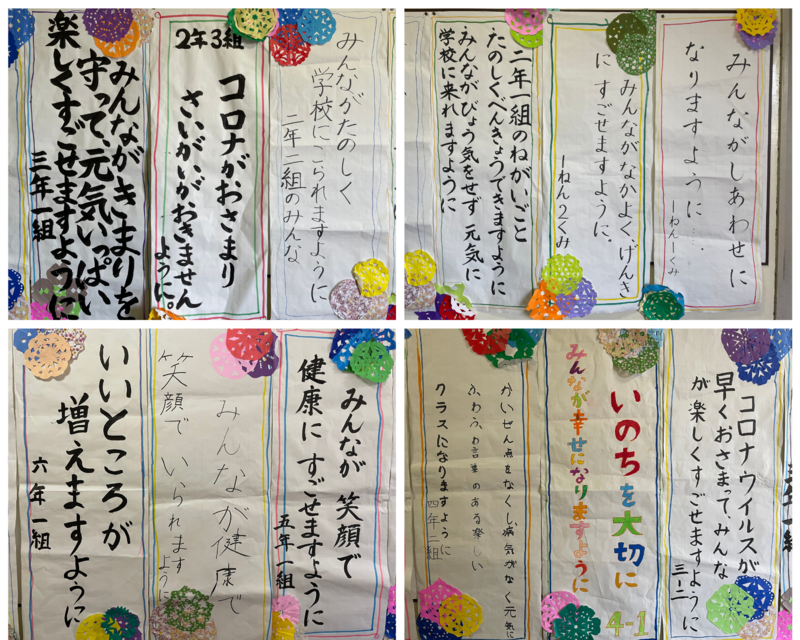 みんながたのしく
学校にこられますように
二年二組のみんな
2年3組
コロナがおさまり
さいがいがおきません
ように。
みんながきまりを
守って、元気いっぱい
楽しくすごせますように
三年一組
みんながしあわせに
なりますように……
みんながなかよく、げんき
に すごせますように。
一ねん2くみ
二年一組のねがいごと
たのしく、べんきょうできますように
みんながびょう気をせず 元気に
学校に来れますように
みんなが 笑顔で
健康に すごせますように
五年一組
みんなが健康で
笑顔で いられます
ように
いいところが
増えますように
六年一組
コロナウイルスが
早くおさまってみんな
が楽しくすごせますように
三-二
いのちを大切に
みんなが幸せになりますように
4-1
かいぜん点をなくし病気がなく元気に
ふわふわ言葉のある楽しい
クラスになりますように
四年二組